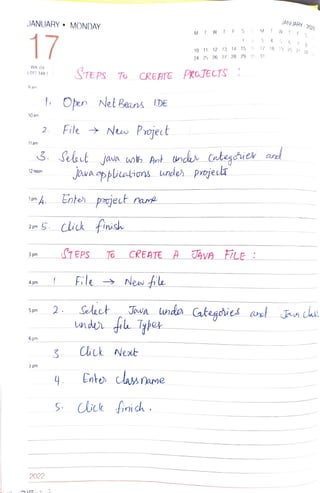 JANUARY • MONDAY
17
JANUARY · 2022
M T W T F S S M T W T F S S
10 11 12 13 14 15 16 17 18 19 20 21 22 23
24 25 26 27 28 29 30 31
STEPS TO CREATE PROJECTS :
9 am
1. Open NetBeans IDE
10 am
2. File → New Project
11 am
3. Select java with Ant under Categories and
12 noon
java applications under projects
1 pm
4. Enter project name
2 pm
5. Click finish
3 pm
STEPS TO CREATE A JAVA FILE :
4 pm
1 File → New file
5 pm
2. Select Java under Categories and Java class
under file Types
6 pm
3 Click Next
7 pm
4. Enter class name
5. Click finish.
2022